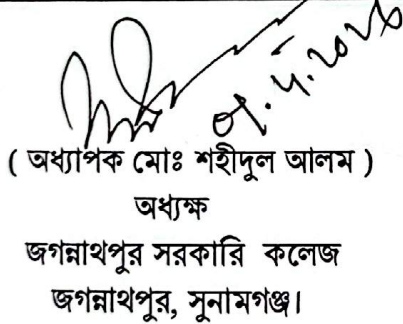 ( অধ্যাপক মোঃ শহীদুল আলম )
অধ্যক্ষ
জগন্নাথপুর সরকারি কলেজ
জগন্নাথপুর, সুনামগঞ্জ।